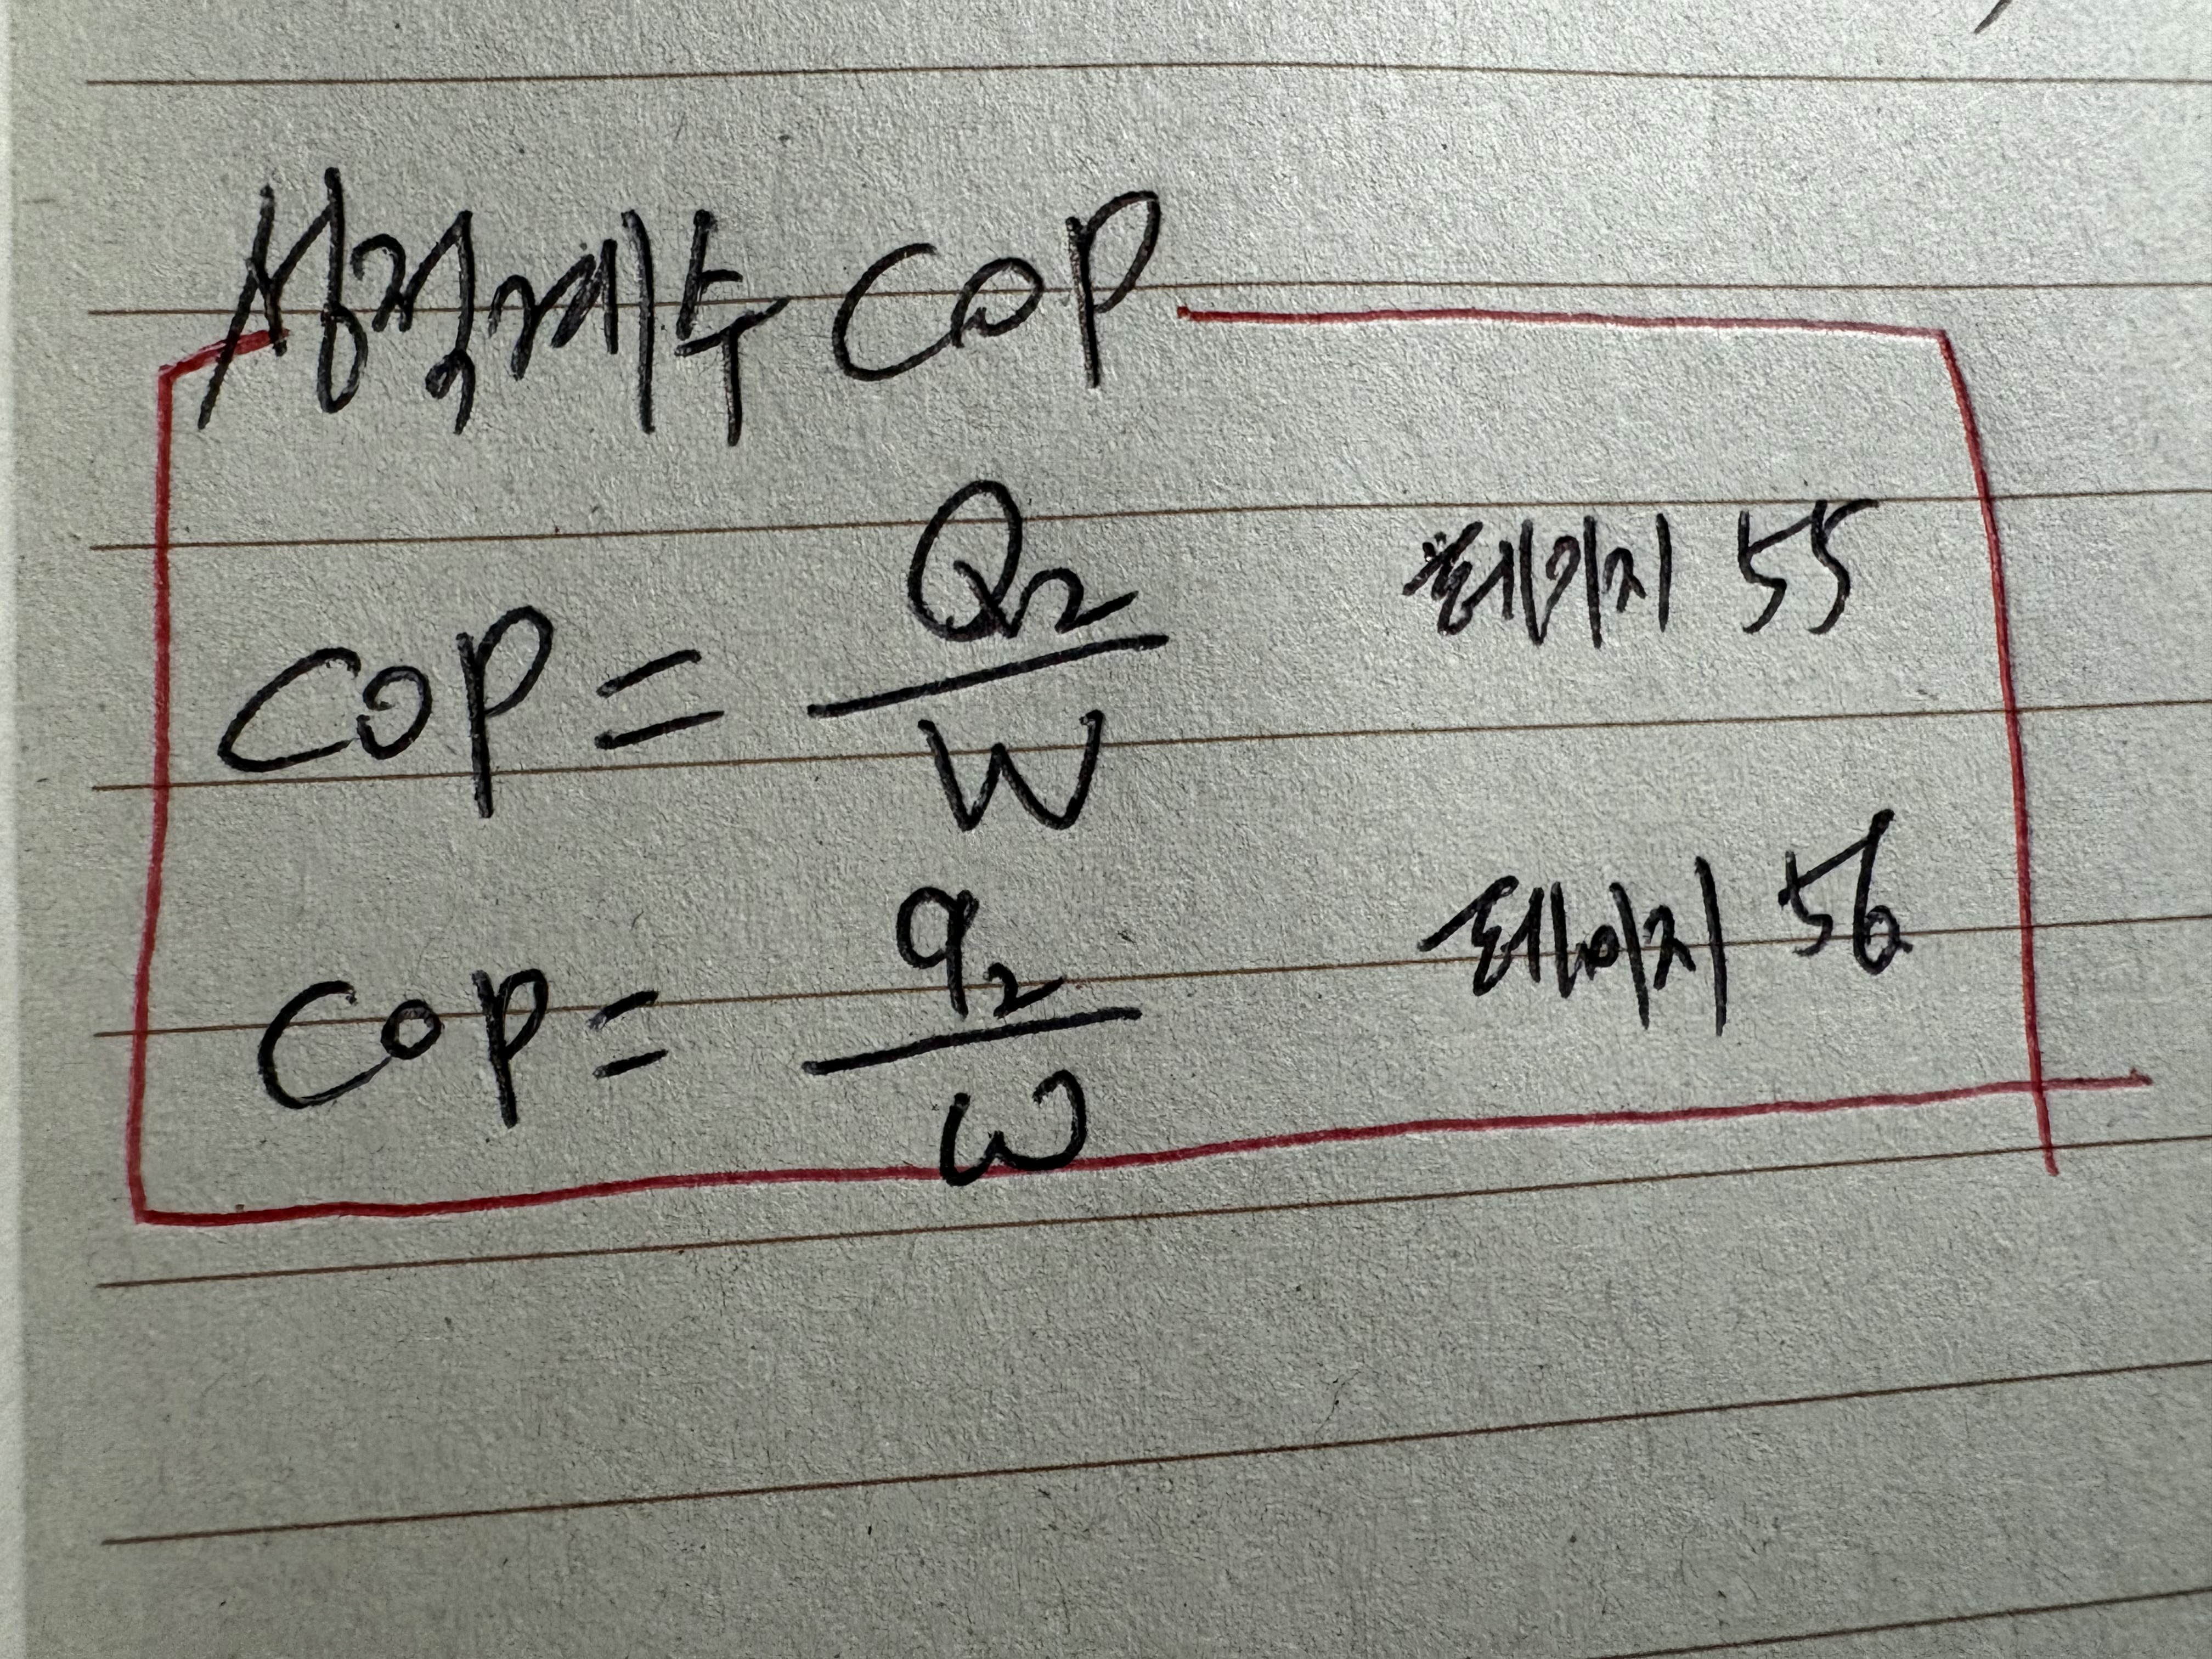 성적계수 COP
COP = Q₂/W 페이지 55
COP = q₂/w 페이지 56